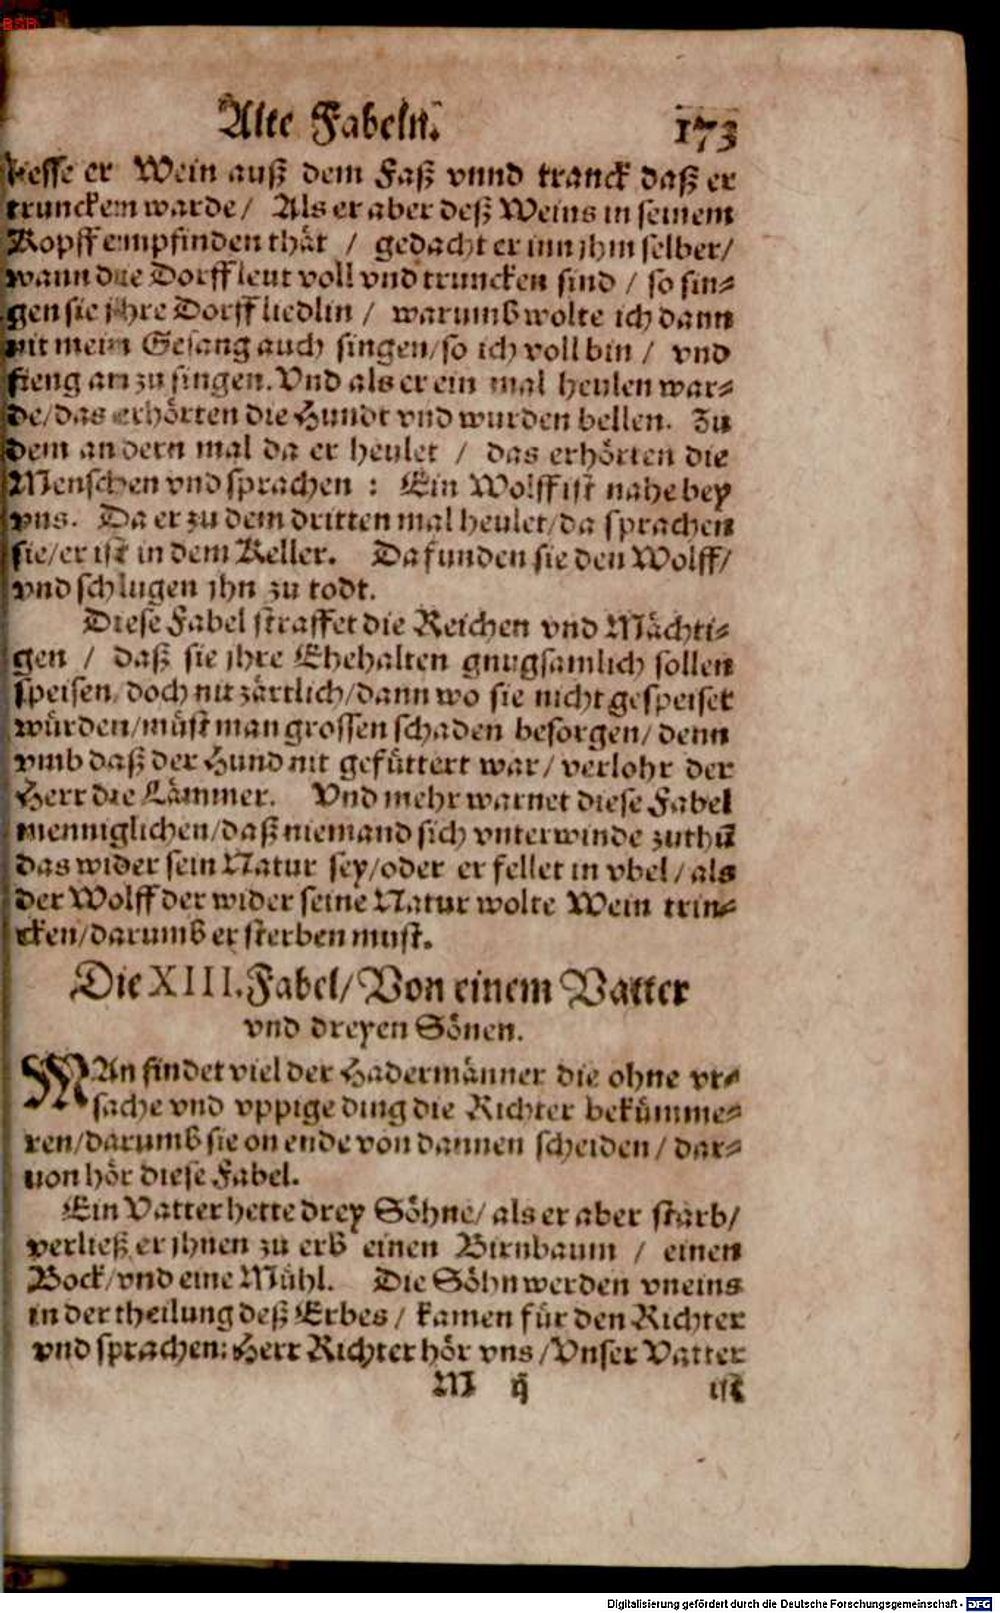 BSB
Alte Fabeln. 173
liesse er Wein auß dem Faß vnnd tranck daß er
trunckem warde / Als er aber deß Weins in seinem
Kopff empfinden thät / gedacht er inn jhm selber /
wann die Dorffleut voll vnd truncken sind / so sin-
gen sie jhre Dorffliedlin / warumb wolte ich dann
nit mein Gesang auch singen / so ich voll bin / vnd
fieng an zu singen. Vnd als er ein mal heulen war-
de / das erhörten die Hundt vnd wurden bellen. Zu
dem andern mal da er heulet / das erhörten die
Menschen vnd sprachen : Ein Wolff ist nahe bey
vns. Da er zu dem dritten mal heulet / da sprachen
sie / er ist in dem Keller. Da funden sie den Wolff /
vnd schlugen jhn zu todt.
Diese Fabel straffet die Reichen vnd Mächti-
gen / daß sie jhre Ehehalten gnugsamlich sollen
speisen / doch nit zärtlich / dann wo sie nicht gespeiset
würden / müst man grossen schaden besorgen / denn
vmb daß der Hund nit gefüttert war / verlohr der
Herr die Lämmer. Vnd mehr warnet diese Fabel
menniglichen / daß niemand sich vnterwinde zuthũ
das wider sein Natur sey / oder er fellet in vbel / als
der Wolff der wider seine Natur wolte Wein trin-
cken / darumb er sterben must.
Die XIII. Fabel / Von einem Vatter
vnd dreyen Sönen.
MAn findet viel der Hadermänner die ohne vr-
sache vnd vppige ding die Richter bekümme-
ren / darumb sie on ende von dannen scheiden / dar-
uon hör diese Fabel.
Ein Vatter hette drey Söhne / als er aber starb /
verließ er jhnen zu erb einen Birnbaum / einen
Bock / vnd eine Mühl. Die Söhn werden vneins
in der theilung deß Erbes / kamen für den Richter
vnd sprachen: Herr Richter hör vns / Vnser Vatter
M ij ist
Digitalisierung gefördert durch die Deutsche Forschungsgemeinschaft - DFG